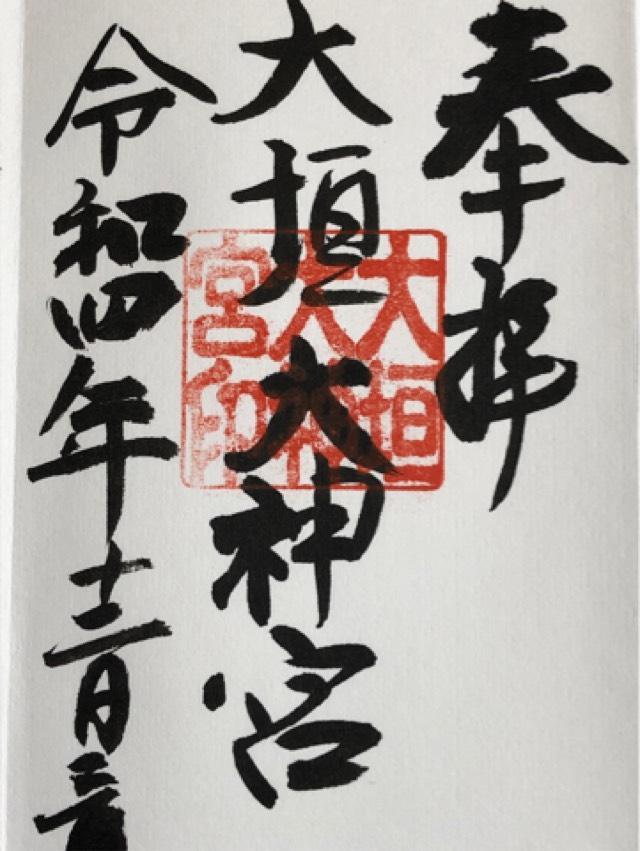 奉拝
大垣大神宮
大垣
大神
宮印
令和四年十二月